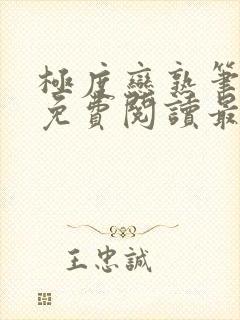 極度彎熟筆
免費閱讀最
王忠誠